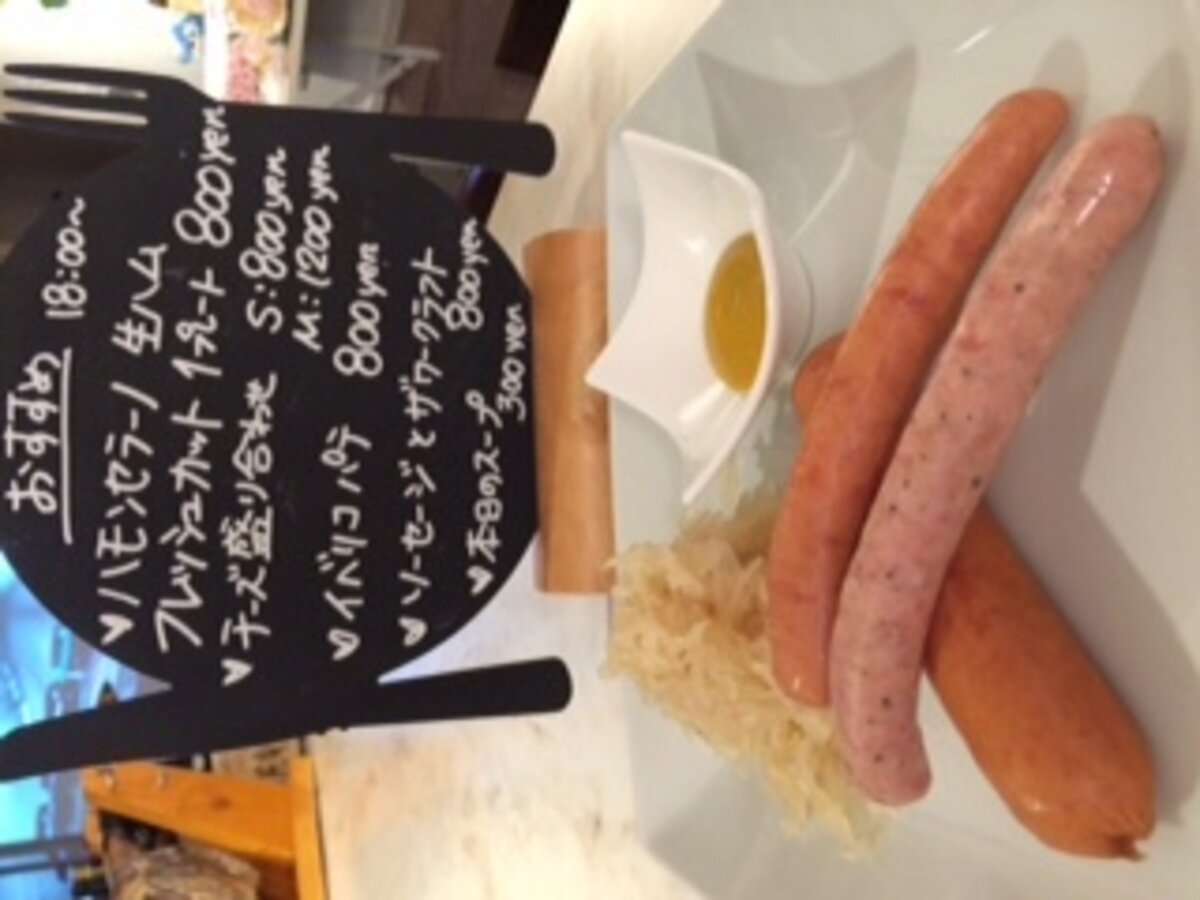 おすすめ 18:00~
♥ハモンセラーノ 生ハム
フレッシュカット 1プレート 800yen
♥チーズ盛り合わせ S:800yen
M:1200yen
♥イベリコパテ 800yen
♥ソーセージとザワークラフト
800yen
♥本日のスープ
300yen